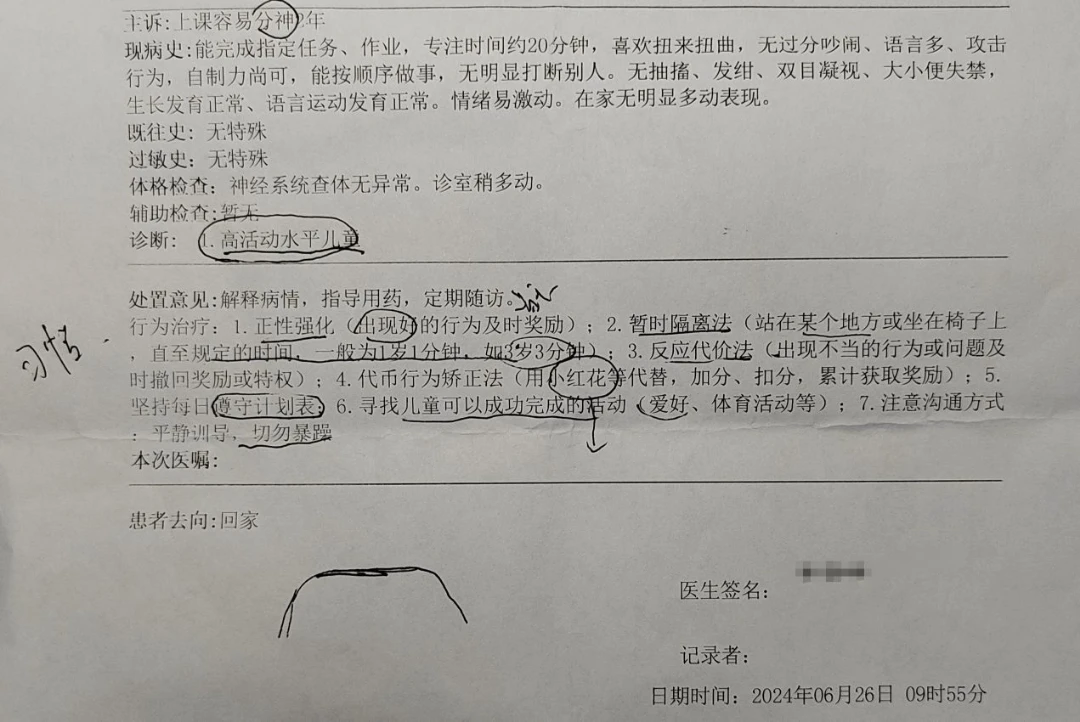 主诉:上课容易分神2年
现病史:能完成指定任务、作业，专注时间约20分钟，喜欢扭来扭曲，无过分吵闹、语言多、攻击
行为，自制力尚可，能按顺序做事，无明显打断别人。无抽搐、发绀、双目凝视、大小便失禁，
生长发育正常、语言运动发育正常。情绪易激动。在家无明显多动表现。
既往史: 无特殊
过敏史: 无特殊
体格检查: 神经系统查体无异常。诊室稍多动。
辅助检查:暂无
诊断: 1.高活动水平儿童
处置意见:解释病情，指导用药，定期随访。
行为治疗: 1.正性强化（出现好的行为及时奖励）；2.暂时隔离法（站在某个地方或坐在椅子上
，直至规定的时间，一般为1岁1分钟，如3岁3分钟）；3.反应代价法（出现不当的行为或问题及
时撤回奖励或特权）；4.代币行为矫正法（用小红花等代替，加分、扣分，累计获取奖励）；5.
坚持每日遵守计划表；6.寻找儿童可以成功完成的活动（爱好、体育活动等）；7.注意沟通方式
：平静训导，切勿暴躁
习惯
本次医嘱:
患者去向:回家
医生签名:
记录者:
日期时间: 2024年06月26日 09时55分